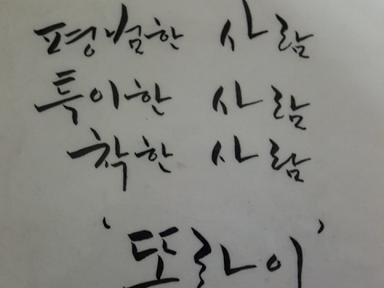 평범한 사람
특이한 사람
착한 사람
'또라이'